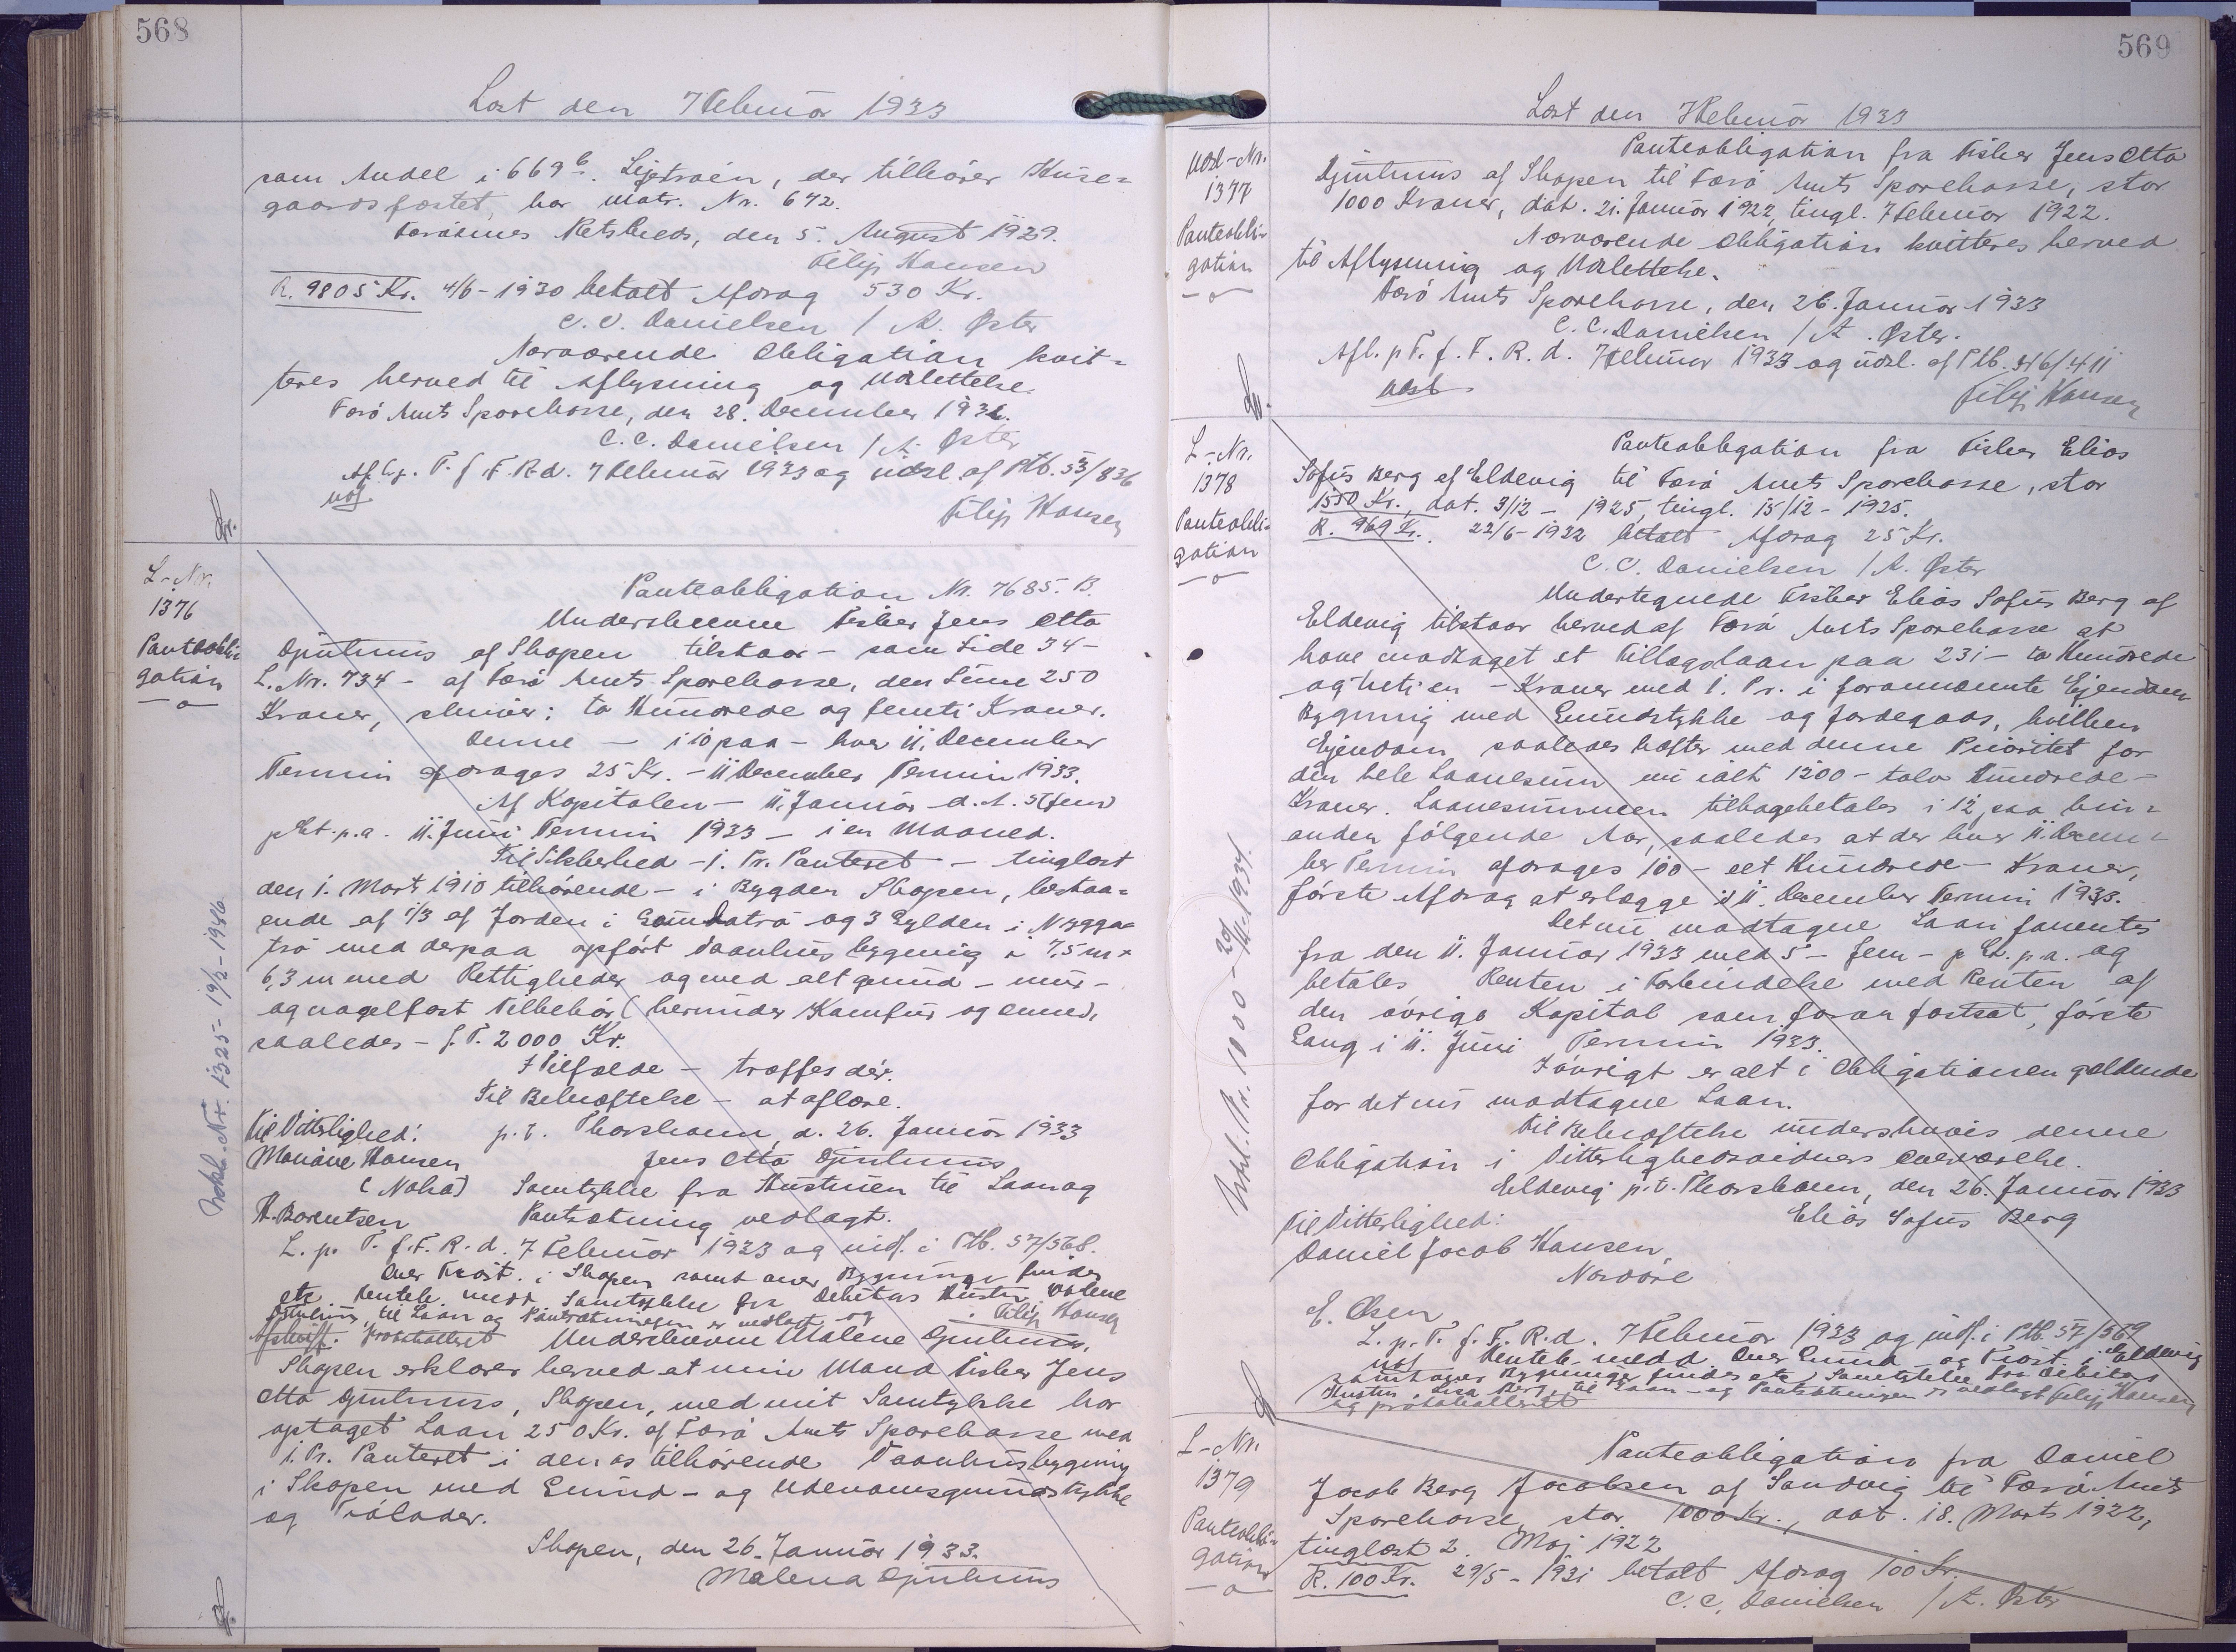 568
Læst den 7 Februar 1933
som Andel i 669b. Lejstraèn, der tilhører Huse=
gaardsfæstet, har matr. Nr. 672.
Færøernes Retskreds, den 5. August 1929.
Filip Hansen
R. 9805 Kr. 4/6-1930 betalt Afdrag 530 Kr.
C. C. Danielsen / A. Øster
Nærværende Obligation kvit=
teres herved til Aflysning og Udslettelse.
Færø Amts Sparekasse, den 28. December 1932.
C. C. Danielsen / A. Øster
Afl. p. T. f. F. R. d. 7 Februar 1933 og udsl. af Ptb. 53/836
Filip Hansen
L-Nr.
1376
Panteobli-
gation
Panteobligation Nr. 7685. B.
Underskrevne Fisker Jens Otto
Djurhuus af Skopen tilstaar - som Side 34 -
L. Nr. 734 - af Færø Amts Sparekasse, den Sum 250
Kroner, skriver: to Hundrede og femti Kroner.
Denne — i 10 paa - hver 11. December
Termin afdrages 25 Kr. - 11 December Termin 1933.
Af Kapitalen — 11. Januar d. A. 5 (fem)
pCt. p.a. 11. Juni Termin 1933 — i en Maaned.
Til Sikkerhed - 1. Pr. Panteret — tinglæst
den 1. Marts 1910 tilhørende - i Bygden Skopen, bestaa=
ende af 1/3 af Jorden i og 3 Gylden i Nygga=
trø med derpaa opført Vaanhusbygning i 7,5 m x
6,3 m med Rettigheder og med alt grund - mur -
og nagelfast Tilbehør (herunder Komfur og Ovne),
saaledes - f. T. 2000 Kr.
I Tilfælde — træffes dèr.
Til Bekræftelse — at aflære.
Til Vitterlighed: p.t. Thorshavn, d. 26. Januar 1933
Hansen Jens Otto Djurhuus
(Nolsø) Samtykke fra Hustruen til Laan og
H. Berentsen Pantsætning vedlagt.
L. p. T. f. F. R. d. 7 Februar 1933 og indf. i Ptb. 57/568.
Over Træst. i Skopen samt over Bygninger findes
etc. Hæftels. medd. Samtykke fra Debitors Hustru Malene
Djurhuus, til Laan og Pantsætningen er vedlagt og Filip Hansen
Afskrift. protokolleret Underskrevne Malene Djurhuus,
Skopen erklærer herved at min Mand Fisker Jens
Otto Djurhuus, Skopen, med mit Samtykke har
optaget Laan 250 Kr. af Færø Amts Sparekasse med
1. Pr. Panteret i den os tilhørende Vaanhusbygning
i Skopen med Grund - og Udenomsgrundstykke
og Tròlader.
Skopen, den 26. Januar 1933.
Malena Djurhuus
Kvkl. Nr. 1325 - 19/2 - 1946
569
Læst den 7 Februar 1933
Udsl-Nr.
1377
Panteobli-
gation
Panteobligation fra Fisker Jens Otto
Djurhuus af Skopen til Færø Amts Sparekasse, stor
1000 Kroner, dat. 21. Januar 1922, tingl. 7 Februar 1922.
Nærværende Obligation kvitteres herved
til Aflysning og Udslettelse.
Færø Amts Sparekasse, den 26. Januar 1933
C. C. Danielsen / A. Øster.
Afl. p. T. f. F. R. d. 7 Februar 1933 og udsl. af Ptb. 46/411
Filip Hansen
L-Nr.
1378
Panteobli-
gation
Panteobligation fra Fisker Elias
Sofus Berg af Eldevig til Færø Amts Sparekasse, stor
1550 Kr., dat. 3/12 - 1925, tingl. 15/12 - 1925.
R. 969 Kr. 22/6-1932 betalt Afdrag 25 Kr.
C. C. Danielsen / A. Øster
Undertegnede Fisker Elias Sofus Berg af
Eldevig tilstaar herved af Færø Amts Sparekasse at
have modtaget et Tillægslaan paa 231 - to Hundrede
og een - Kroner med 1. Pr. i forannævnte Ejendom
Bygning med Grundstykke og Jordegods, hvilken
Ejendom saaledes hæfter med denne Prioritet for
den hele Laanesum nu ialt 1200 - tolv Hundrede -
Kroner. Laanesummen tilbagebetales i 12 paa hin=
anden følgende Aar, saaledes at der hver 11. Decem=
ber Termin afdrages 100 - eet Hundrede - Kroner,
første Afdrag at erlægge i 11. December Termin 1933.
Det nu modtagne Laan forrentes
fra den 11. Januar 1933 med 5 - fem - p Ct. p.a. og
betales Renten i Forbindelse med Renten af
den øvrige Kapital som foran fastsat, første
Gang i 11. Juni Termin 1933.
Iøvrigt er alt i Obligationen gældende
for det nu modtagne Laan.
Til Bekræftelse underskrives denne
Obligation i Vitterlighedsvidners Overværelse.
Eldevig p.t. Thorshavn, den 26. Januar 1933
Til Vitterlighed: Elias Sofus Berg
Daniel Jacob Hansen,
Nordøre
E. Olsen
L. p. T. f. F. R. d. 7 Februar 1933 og indf. i Ptb. 57/569
Hæftels. medd. Over Grund og Træst. i Eldevig
samt over Bygninger findes etc. Samtykke fra Debitors
Hustru, Lisa Berg, til Laan - og Pantsætningen er vedlagt Filip Hansen
og protokolleret
L-Nr.
1379
Panteobli-
gation
Panteobligation fra Daniel
Jacob Berg Jacobsen af Sandvig til Færø Amts
Sparekasse, stor 1000 Kr., dat. 18. Marts 1922,
tinglæst 2. Maj 1922
R. 100 Kr. 29/5 - 1931 betalt Afdrag 100 Kr.
C. C. Danielsen / A. Øster